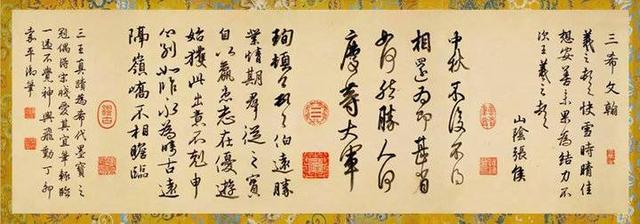 三希文翰
羲之頓首快雪時晴佳
想安善未果為結力不
次王羲之頓首
山陰張侯
中秋不復不得
相還為即甚省
如何然勝人何
慶等大軍
珣頓首頓首伯遠勝
業情期群從之寶
自以羸患志在優遊
始獲此出意不剋申
分別如昨永為疇古遠
隔嶺嶠不相瞻臨
三王真蹟為希代墨寶之
冠偶得宋牋愛其宜筆輒臨
一過不覺神興飛動丁卯
嘉平御筆